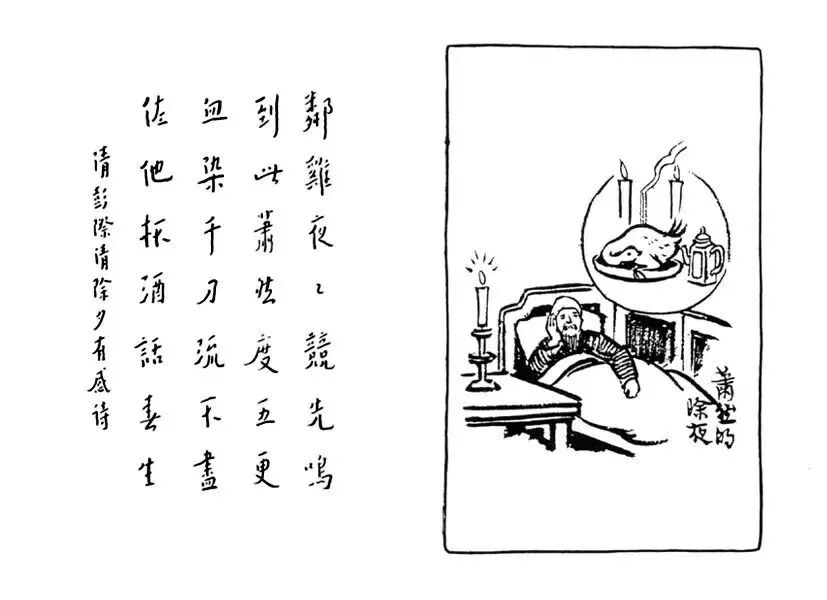 鄰雞夜々競先鳴
到此蕭然度五更
血染千刀流不盡
佐他杯酒話春生
清彭際清除夕有感诗
蕭然的
除夜